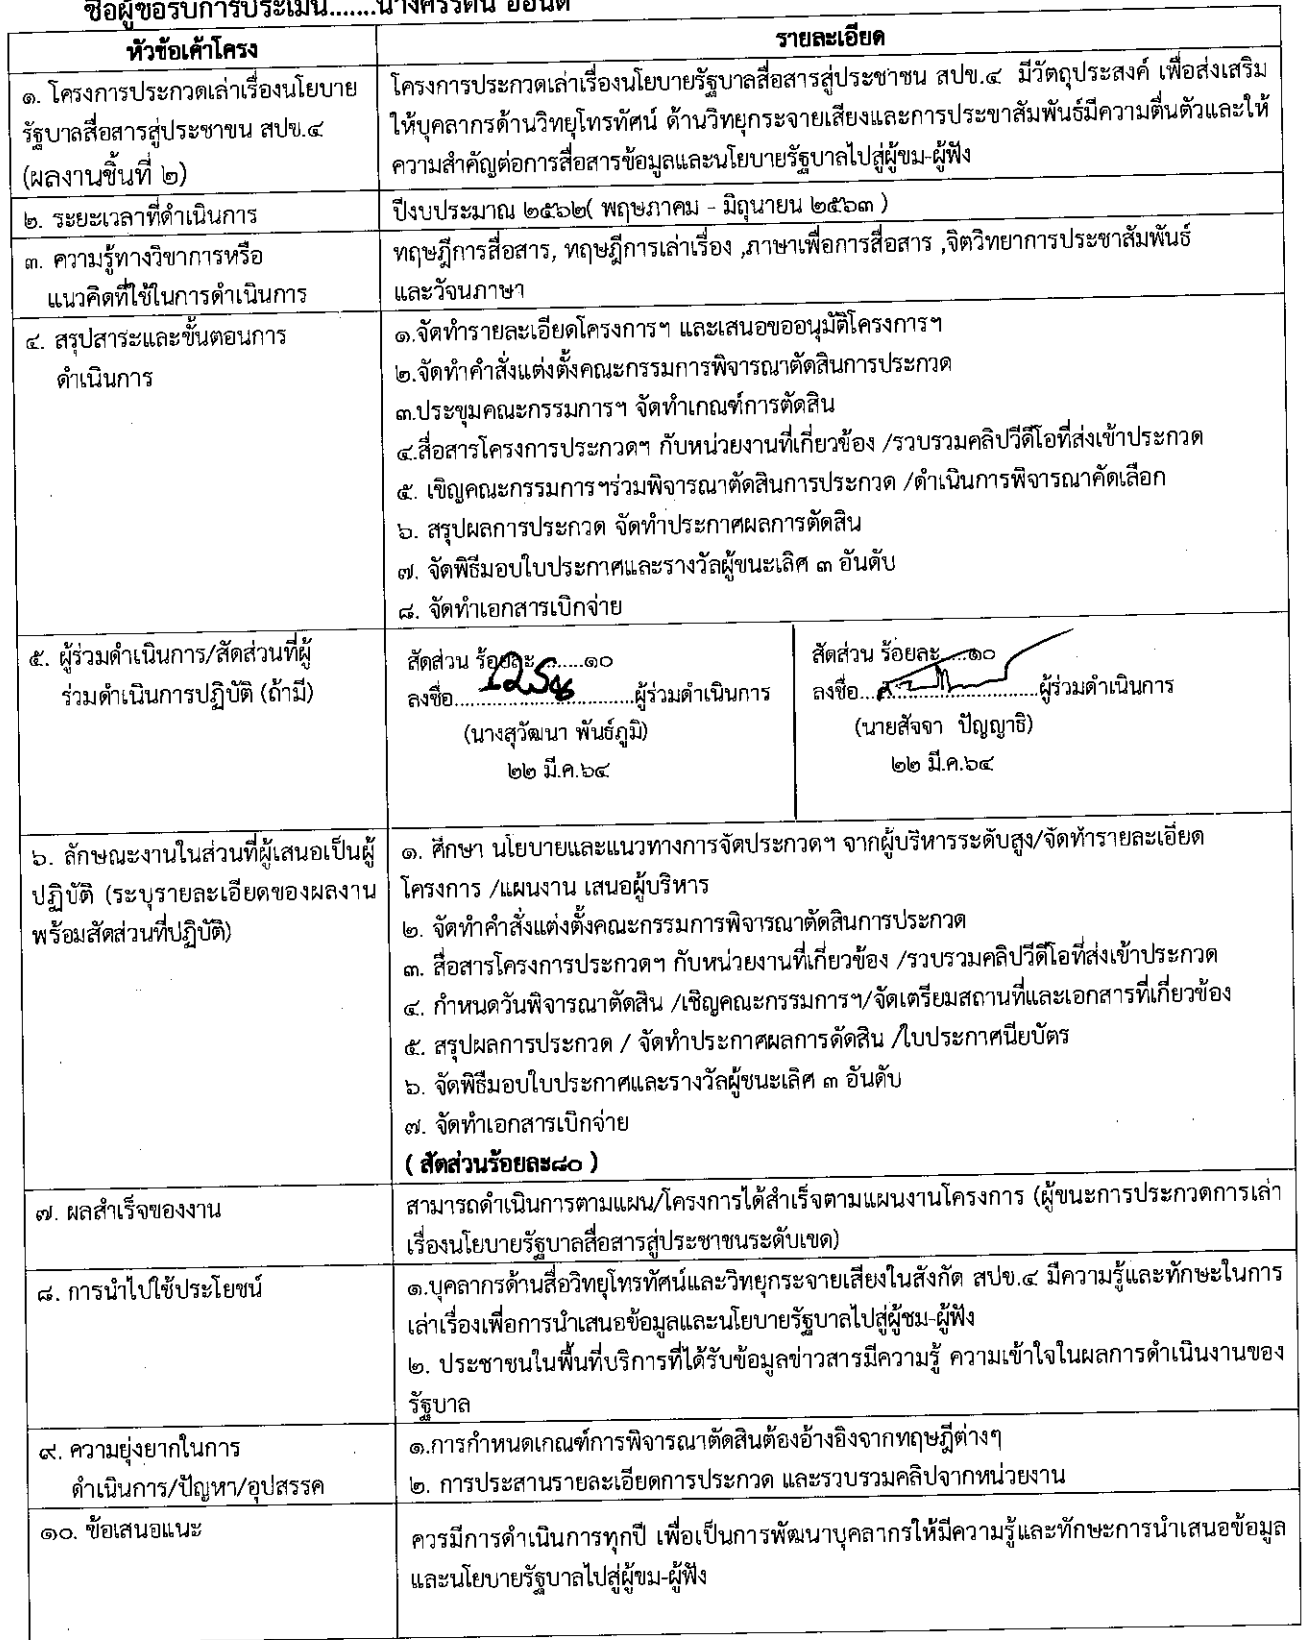 ชื่อผู้ขอรับการประเมิน.......นาง
หัวข้อเค้าโครง
รายละเอียด
๑. โครงการประกวดเล่าเรื่องนโยบาย
รัฐบาลสื่อสารสู่ประชาชน สปข.๔
(ผลงานชิ้นที่ ๒)
โครงการประกวดเล่าเรื่องนโยบายรัฐบาลสื่อสารสู่ประชาชน สปข.๔ มีวัตถุประสงค์ เพื่อส่งเสริม
ให้บุคลากรด้านวิทยุโทรทัศน์ ด้านวิทยุกระจายเสียงและการประชาสัมพันธ์มีความตื่นตัวและให้
ความสำคัญต่อการสื่อสารข้อมูลและนโยบายรัฐบาลไปสู่ผู้ชม-ผู้ฟัง
๒. ระยะเวลาที่ดำเนินการ
ปีงบประมาณ ๒๕๖๒( พฤษภาคม - มิถุนายน ๒๕๖๓ )
๓. ความรู้ทางวิชาการหรือ
แนวคิดที่ใช้ในการดำเนินการ
ทฤษฎีการสื่อสาร, ทฤษฎีการเล่าเรื่อง ,ภาษาเพื่อการสื่อสาร ,จิตวิทยาการประชาสัมพันธ์
และวัจนภาษา
๔. สรุปสาระและขั้นตอนการ
ดำเนินการ
๑.จัดทำรายละเอียดโครงการฯ และเสนอขออนุมัติโครงการฯ
๒.จัดทำคำสั่งแต่งตั้งคณะกรรมการพิจารณาตัดสินการประกวด
๓.ประชุมคณะกรรมการฯ จัดทำเกณฑ์การตัดสิน
๔.สื่อสารโครงการประกวดฯ กับหน่วยงานที่เกี่ยวข้อง /รวบรวมคลิปวีดีโอที่ส่งเข้าประกวด
๕. เชิญคณะกรรมการฯร่วมพิจารณาตัดสินการประกวด /ดำเนินการพิจารณาคัดเลือก
๖. สรุปผลการประกวด จัดทำประกาศผลการตัดสิน
๗. จัดพิธีมอบใบประกาศและรางวัลผู้ชนะเลิศ ๓ อันดับ
๘. จัดทำเอกสารเบิกจ่าย
๕. ผู้ร่วมดำเนินการ/สัดส่วนที่ผู้
ร่วมดำเนินการปฏิบัติ (ถ้ามี)
สัดส่วน ร้อยละ........๑๐
ลงชื่อ................................ผู้ร่วมดำเนินการ
(นางสุวัฒนา พันธ์ภูมิ)
๒๒ มี.ค.๖๔
สัดส่วน ร้อยละ.....๑๐
ลงชื่อ................................ผู้ร่วมดำเนินการ
(นายสัจจา ปัญญาธิ)
๒๒ มี.ค.๖๔
๖. ลักษณะงานในส่วนที่ผู้เสนอเป็นผู้
ปฏิบัติ (ระบุรายละเอียดของผลงาน
พร้อมสัดส่วนที่ปฏิบัติ)
๑. ศึกษา นโยบายและแนวทางการจัดประกวดฯ จากผู้บริหารระดับสูง/จัดทำรายละเอียด
โครงการ /แผนงาน เสนอผู้บริหาร
๒. จัดทำคำสั่งแต่งตั้งคณะกรรมการพิจารณาตัดสินการประกวด
๓. สื่อสารโครงการประกวดฯ กับหน่วยงานที่เกี่ยวข้อง /รวบรวมคลิปวีดีโอที่ส่งเข้าประกวด
๔. กำหนดวันพิจารณาตัดสิน /เชิญคณะกรรมการฯ/จัดเตรียมสถานที่และเอกสารที่เกี่ยวข้อง
๕. สรุปผลการประกวด / จัดทำประกาศผลการตัดสิน /ใบประกาศนียบัตร
๖. จัดพิธีมอบใบประกาศและรางวัลผู้ชนะเลิศ ๓ อันดับ
๗. จัดทำเอกสารเบิกจ่าย
( สัดส่วนร้อยละ๘๐ )
๗. ผลสำเร็จของงาน
สามารถดำเนินการตามแผน/โครงการได้สำเร็จตามแผนงานโครงการ (ผู้ชนะการประกวดการเล่า
เรื่องนโยบายรัฐบาลสื่อสารสู่ประชาชนระดับเขต)
๘. การนำไปใช้ประโยชน์
๑.บุคลากรด้านสื่อวิทยุโทรทัศน์และวิทยุกระจายเสียงในสังกัด สปข.๔ มีความรู้และทักษะในการ
เล่าเรื่องเพื่อการนำเสนอข้อมูลและนโยบายรัฐบาลไปสู่ผู้ชม-ผู้ฟัง
๒. ประชาชนในพื้นที่บริการที่ได้รับข้อมูลข่าวสารมีความรู้ ความเข้าใจในผลการดำเนินงานของ
รัฐบาล
๙. ความยุ่งยากในการ
ดำเนินการ/ปัญหา/อุปสรรค
๑.การกำหนดเกณฑ์การพิจารณาตัดสินต้องอ้างอิงจากทฤษฎีต่างๆ
๒. การประสานรายละเอียดการประกวด และรวบรวมคลิปจากหน่วยงาน
๑๐. ข้อเสนอแนะ
ควรมีการดำเนินการทุกปี เพื่อเป็นการพัฒนาบุคลากรให้มีความรู้และทักษะการนำเสนอข้อมูล
และนโยบายรัฐบาลไปสู่ผู้ชม-ผู้ฟัง